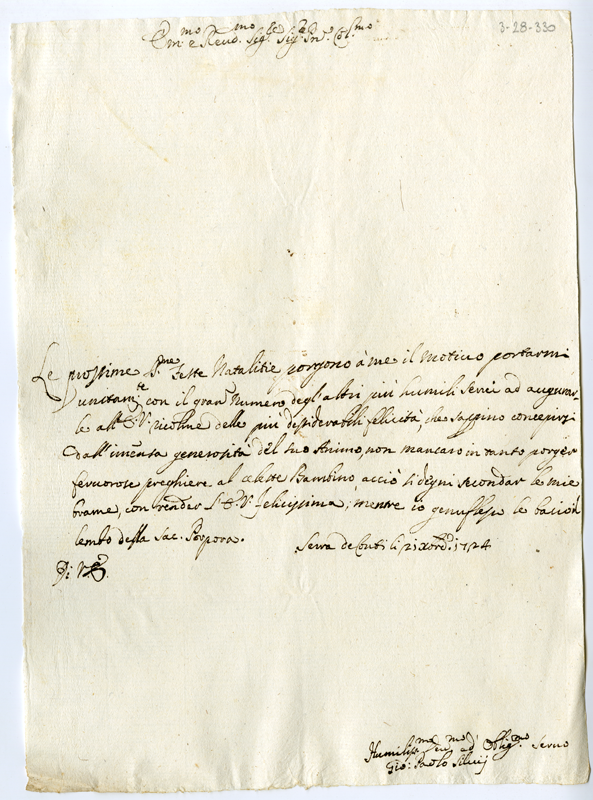 3-28-330
Em.mo e Reud.mo Sig.re Sig.re Pn.e Col.mo
Le prossime S.me Feste Natalitie porgono à me il motiuo portarmi
unitam.te con il gran Numero degl'altri più humili Serui ad augurar-
le all'E.V. ricolme delle più desiderabili felicità che sappino concepirsi
dall'imensa generosità del suo Animo, non mancaro in tanto porger
feruorose preghiere al celeste Bambino acciò si degni secondar le mie
brame, con render l'E.V. felicissima; mentre io genuflesso le bacio il
lembo della Sac. Porpora.
Serra de Conti li 21 Xbre 1724
Di V.E.
Humiliss.mo ed Oblig.mo Seruo
Gio: Paolo Siluij